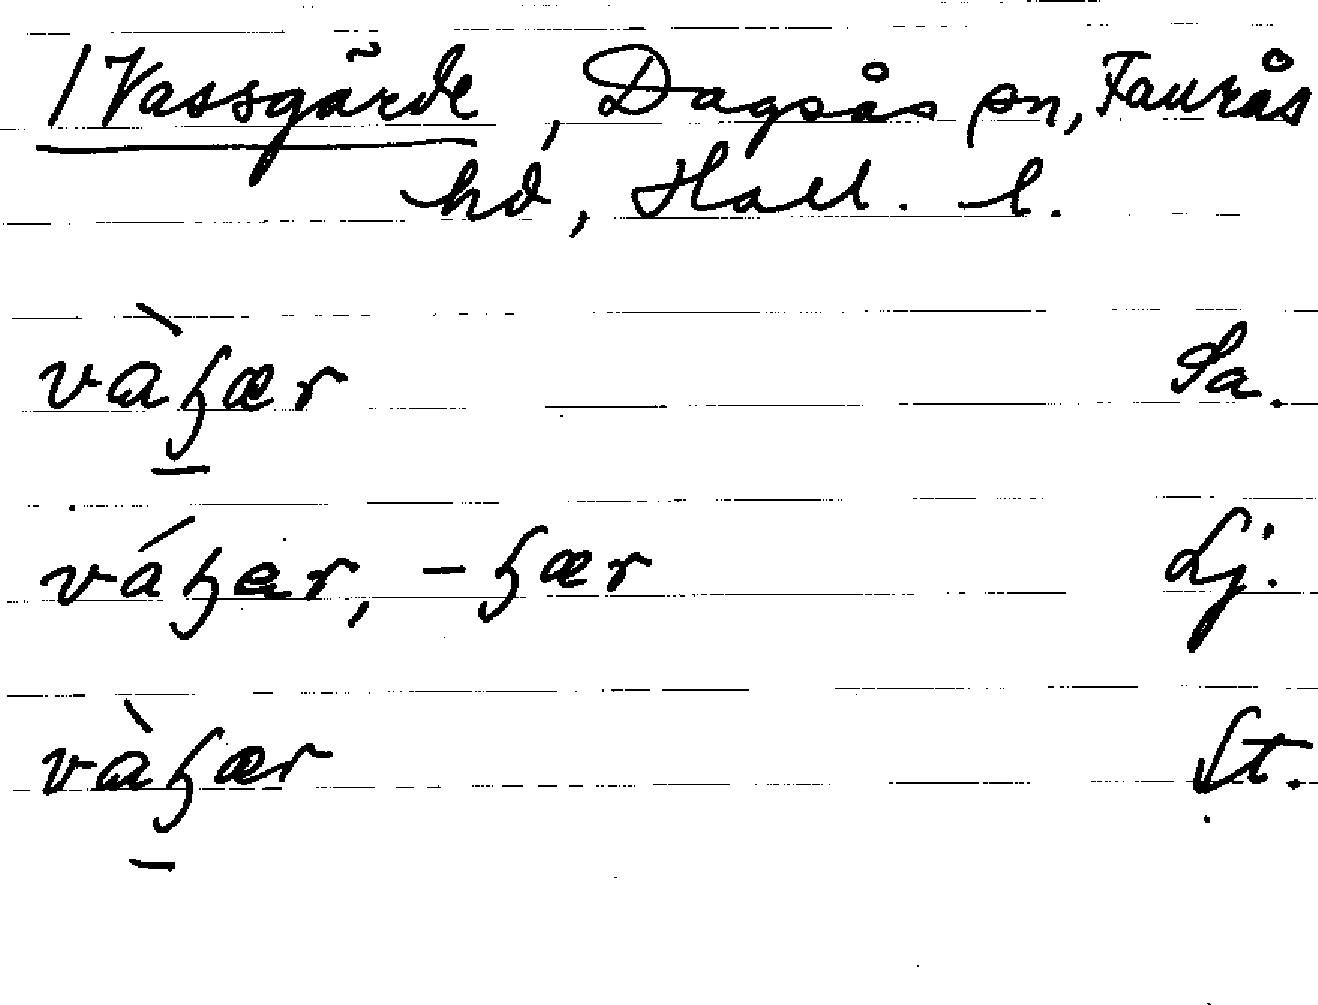 / Vassgärde, Dagsås sn, Faurås
hd, Hall. l.
vàʒær Sa.
váʒer, -ʒær Lj.
vàʒær St.